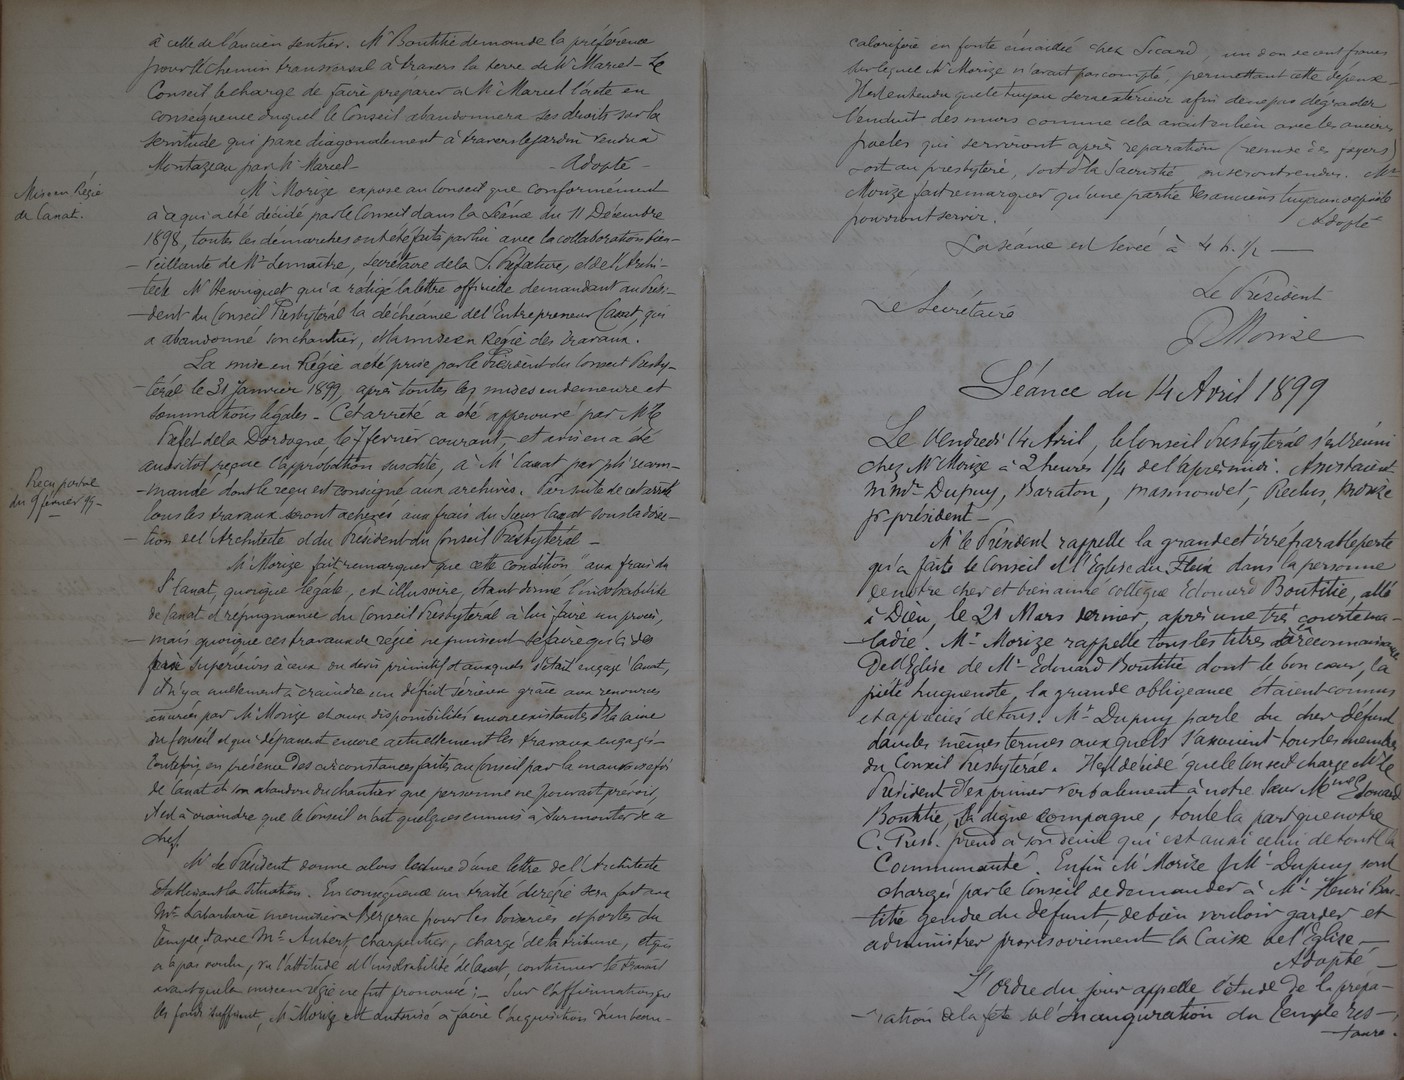 à celle de l'ancien sentier. Mr Boutitié demande la préférence
pour le chemin transversal à travers la terre de Mr Marcel - Le
Conseil le charge de faire préparer à Mr Marcel l'acte en
conséquence duquel le Conseil abandonnera ses droits sur la
servitude qui passe diagonalement à travers le jardin vendu à
Montazeau par Mr Marcel - Adopté -
Mise en Régie
de Canat.
Mr Morize expose au Conseil que conformément
à ce qui a été décidé par le Conseil dans la Séance du 11 Décembre
1898, toutes les démarches ont été faites par lui avec la collaboration bien-
-veillante de Mr Lemaître, secrétaire de la S. Préfecture, et de l'Archi-
-tecte Mr Henriquet qui a rédigé la lettre officielle demandant au Prési-
-dent du Conseil Presbytéral la déchéance de l'Entrepreneur Canat, qui
a abandonné son chantier, et la mise en Régie des travaux.
La mise en Régie a été prise par le Président du Conseil Presby-
-téral le 31 Janvier 1899, après toutes les mises en demeure et
sommations légales - Cet arrêté a été approuvé par Mr le
Préfet de la Dordogne le 7 février courant - et avis en a été
aussitôt reçue l'approbation susdite, à Mr Canat par pli recom-
-mandé dont le reçu est consigné aux archives. Par suite de cet arrêté
Reçu postal
du 9 février 99 -
tous les travaux seront achevés aux frais du Sieur Canat sous la direc-
-tion de l'Architecte et du Président du Conseil Presbytéral -
Mr Morize fait remarquer que cette condition "aux frais du
Sr Canat, quoique légale, est illusoire, étant donné l'insolvabilité
de Canat et répugnance du Conseil Presbytéral à lui faire un procès,
mais quoique ces travaux de régie ne puissent se faire qu'à des
prix supérieurs à ceux du devis primitif et auxquels s'était engagé Canat,
il n'y a nullement à craindre un déficit sérieux grâce aux ressources
assurées par Mr Morize et aux disponibilités encore existantes à la caisse
du Conseil et qui dépassent encore actuellement les travaux engagés -
Toutefois, en présence des circonstances faites au Conseil par la mauvaise foi
de Canat et son abandon du chantier que personne ne pouvait prévoir,
il est à craindre que le Conseil n'ait quelques ennuis à surmonter de ce
chef.
Mr le Président donne alors lecture d'une lettre de l'Architecte
établissant la situation. En conséquence un traité de régie sera fait avec
Mr Labarbarie menuisier à Bergerac pour les boiseries et portes du
temple et avec Mr Aubert charpentier, chargé de la tribune, et qui
n'a pas voulu, vu l'attitude et l'insolvabilité de Canat, continuer le travail
avant que la mise en régie ne fut prononcée ; - Sur l'affirmation que
les fonds suffisent, Mr Morize est autorisé à faire l'acquisition d'un beau -
calorifère en fonte émaillée chez Sicard, un don de cent francs
sur lequel Mr Morize n'avait pas compté, permettant cette dépense -
Il est entendu que le tuyau sera extérieur afin de ne pas dégrader
l'enduit des murs comme cela avait eu lieu avec les anciens
poeles qui serviront après réparation (remise des foyers)
soit au presbytère, soit à la Sacristie ou seront vendus. Mr
Morize fait remarquer qu'une partie des anciens tuyaux
pourront servir. Adopté
La séance est levée à 4 h. 1/2 -
Le Président
Le Secrétaire
Morize
Séance du 14 Avril 1899
Le Vendredi 14 Avril, le Conseil Presbytéral s'est réuni
chez Mr Morize à 2 heures 1/4 de l'après midi. Assistaient
MMrs Dupuy, Baraton, Masmondet, Reclus, Morize
pr président -
Mr le Président rappelle la grande et irréparable perte
qu'a faite le Conseil et l'Eglise du Fleix dans la personne
de notre cher et bien aimé collègue Edouard Boutitié, allé
à Dieu, le 21 Mars dernier, après une très courte ma-
-ladie. Mr Morize rappelle tous les titres à la reconnaissance
de l'Eglise de Mr Edouard Boutitié dont le bon cœur, la
piété huguenote, la grande obligeance étaient connus
et appréciés de tous. Mr Dupuy parle du cher défunt
dans les mêmes termes auxquels s'associent tous les membres
du Conseil Presbytéral. Il est décidé que le Conseil charge Mr le
Président d'exprimer verbalement à notre sœur Mme Edouard
Boutitié, sa digne compagne, toute la part que notre
C. Presb. prend à son deuil qui est aussi celui de toute la
Communauté. Enfin Mr Morize & Mr Dupuy sont
chargés par le Conseil de demander à Mr Henri Bou-
-titié gendre du défunt, de bien vouloir garder et
administrer provisoirement la Caisse de l'Eglise -
Adopté -
L'Ordre du jour appelle l'étude de la prépa-
-ration de la fête de l'inauguration du Temple res-
-tauré.